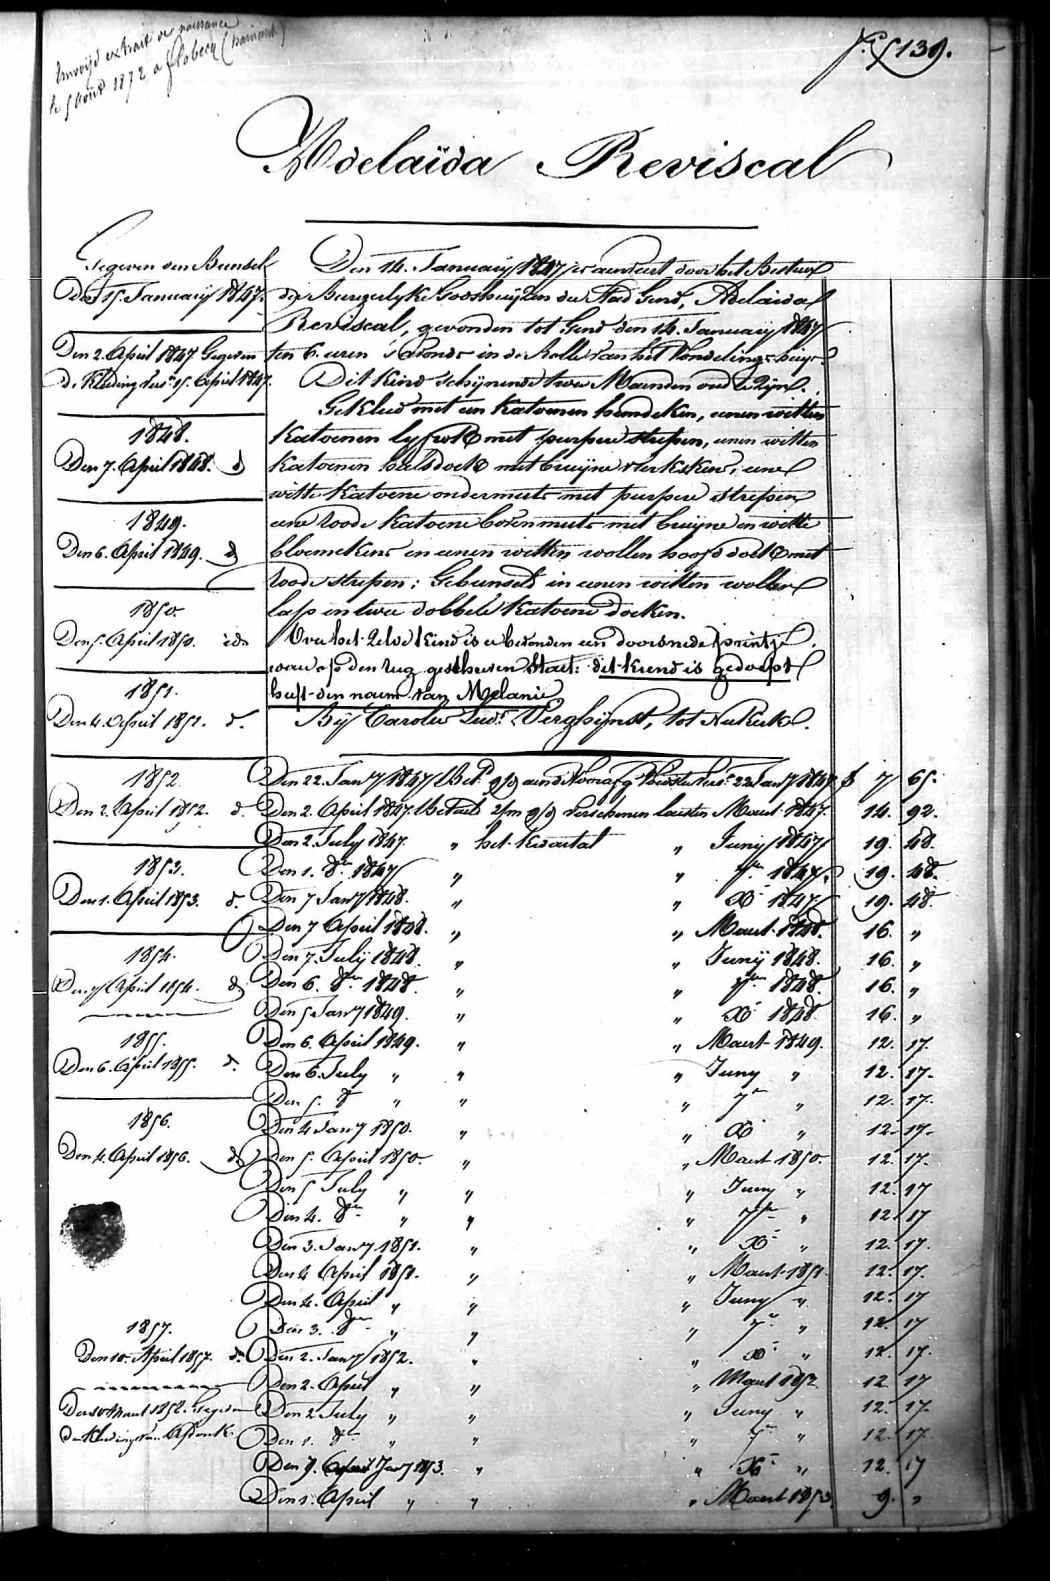 Envoyé extrait de naissance
le 5 Août 1872 à flobecq (Hainaut)
f.° 139.
Adelaïda Reviscal
Gegeven den Bunsel
Den 15. January 1847.
Den 2. April 1847 Gegeven
de Kleding van 15. April 1847.
1848.
Den 7. April 1848. d
1849.
Den 6. April 1849. d
1850.
Den 5. April 1850. idn
1851.
Den 4. April 1851. d.
1852.
Den 2. April 1852. d.
1853.
Den 1. April 1853. d.
1854.
Den 7 April 1854. d
1855.
Den 6. April 1855. d.
1856.
Den 4. April 1856. d
1857.
Den 10. April 1857. d.
Den 10 Maart 1852. Gegeven
de Kleding van
Den 14. January 1847 is aanveert door het Bestuer
der Burgerlyke Godshuyzen der Stad Gend, Adelaïda
Reviscal, gevonden tot Gend den 14. January 1847
ten 6. uren 's avonds in de Rolle van het Vondelings-huys.
Dit Kind schynende twee Maenden oud te zyn.
Gekleed met een Katoenen hemdeken, eenen witten
Katoenen lyfrok met purpere strepen, eenen witten
Katoenen halsdoek met bruyne sterkskens, eene
witte Katoene ondermuts met purpere strepen,
eene roode Katoene bovenmuts met bruyne en witte
bloemekens en eenen witten wollen hoofddoek met
roode strepen; Gebunseld in eenen witten wollen
lap en twee dobbele Katoene doeken.
Over het zelve kind is er bevonden een doorsnede printje
waer op den rug geschreven staet: dit kiend is gedoopt
heeft den naem van Melanie
Bij Carolus Lud: Verghijnst, tot Nukerke.
Den 22. Jany 1847 Bet.d 22 Jany 1847. f 7 65.
Den 2. April 1847. Betaelt verschenen laesten Maert 1847. 14. 92.
Den 2. July 1847. " het Kwartael " Juny 1847 19. 48.
Den 1. 8.er 1847 " " 7.er 1847. 19. 48.
Den 7 Jany 1848. " " X.r 1847 19. 48.
Den 7 April 1848. " " Maert 1848. 16. "
Den 7. July 1848. " " Juny 1848. 16. "
Den 6. 8.er 1848. " " 7.er 1848. 16. "
Den 5 Jany 1849. " " X.r 1848 16. "
Den 6. April 1849. " " Maert 1849. 12. 17.
Den 6. July " " " Juny " 12. 17.
Den 5. 8 " " " 7.r " 12. 17.
Den 4 Jany 1850. " " X.r " 12. 17.
Den 5. April 1850. " " Maert 1850. 12. 17.
Den 5 July " " " Juny " 12. 17
Den 4. 8.er " " " 7.er " 12. 17
Den 3. Jany 1851. " " X.r " 12. 17.
Den 4 April 1851. " " Maert 1851 12. 17.
Den 4. April " " " Juny " 12. 17
Den 3. 8.er " " " 7.r " 12. 17
Den 2. Jany 1852. " " X.r " 12. 17.
Den 2. April " " " Maert 1852 12 17
Den 2 July " " " Juny " 12. 17.
Den 1. 8.er " " " 7.r " 12. 17.
Den 7. Jany 1853. " " X.r " 12. 17
Den 1. April " " " Maert 1853 9. "